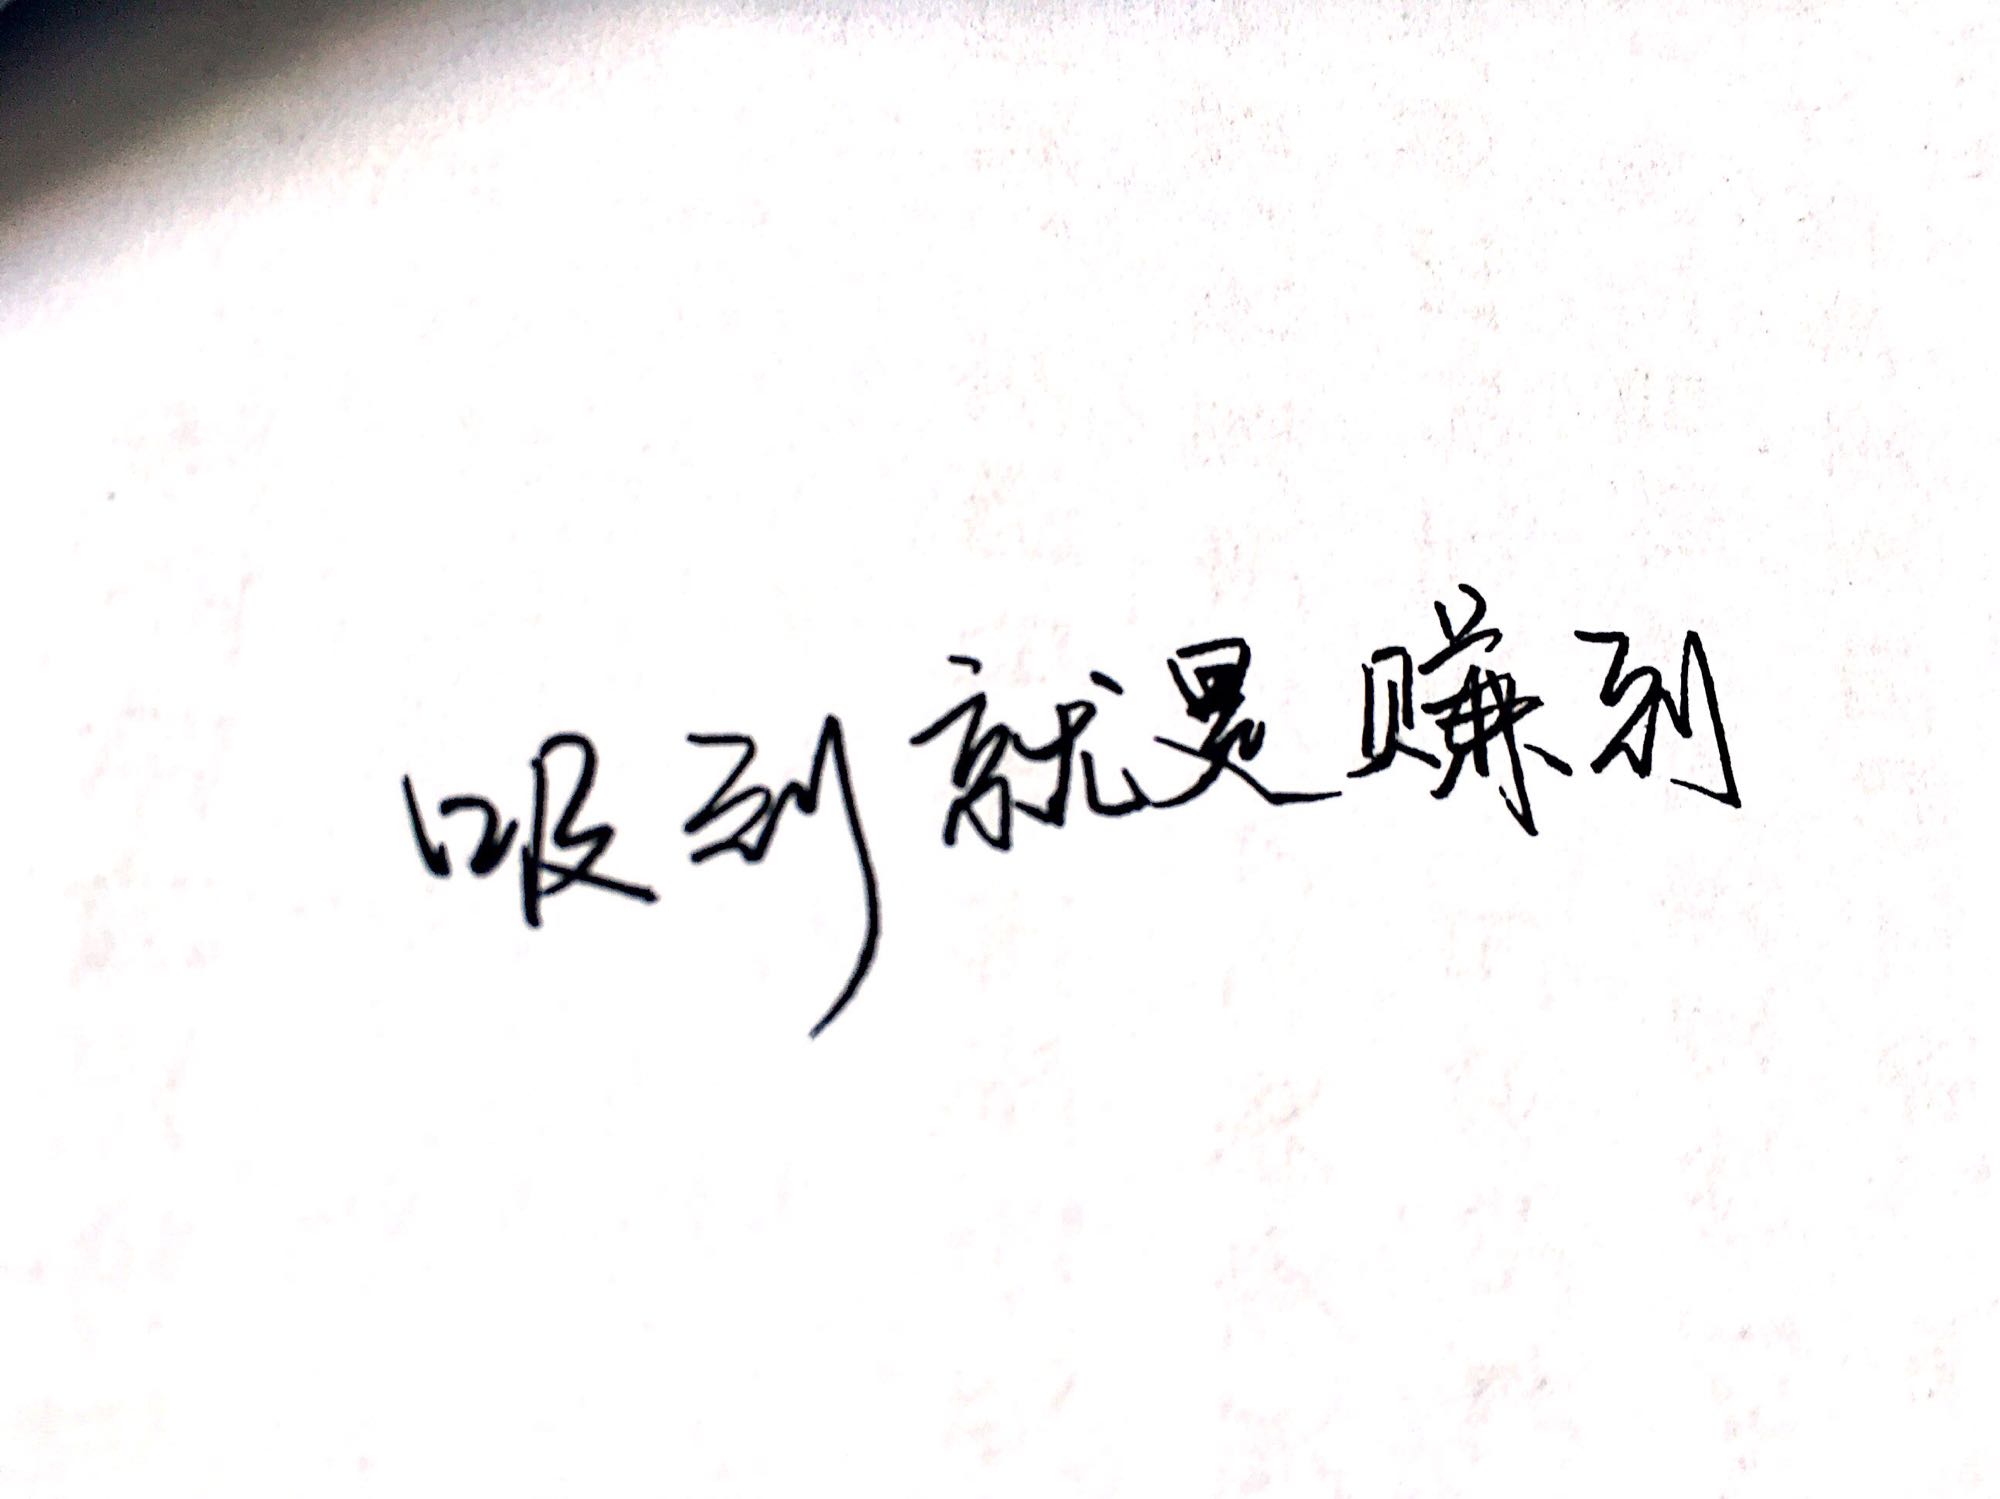 吸到就是赚到